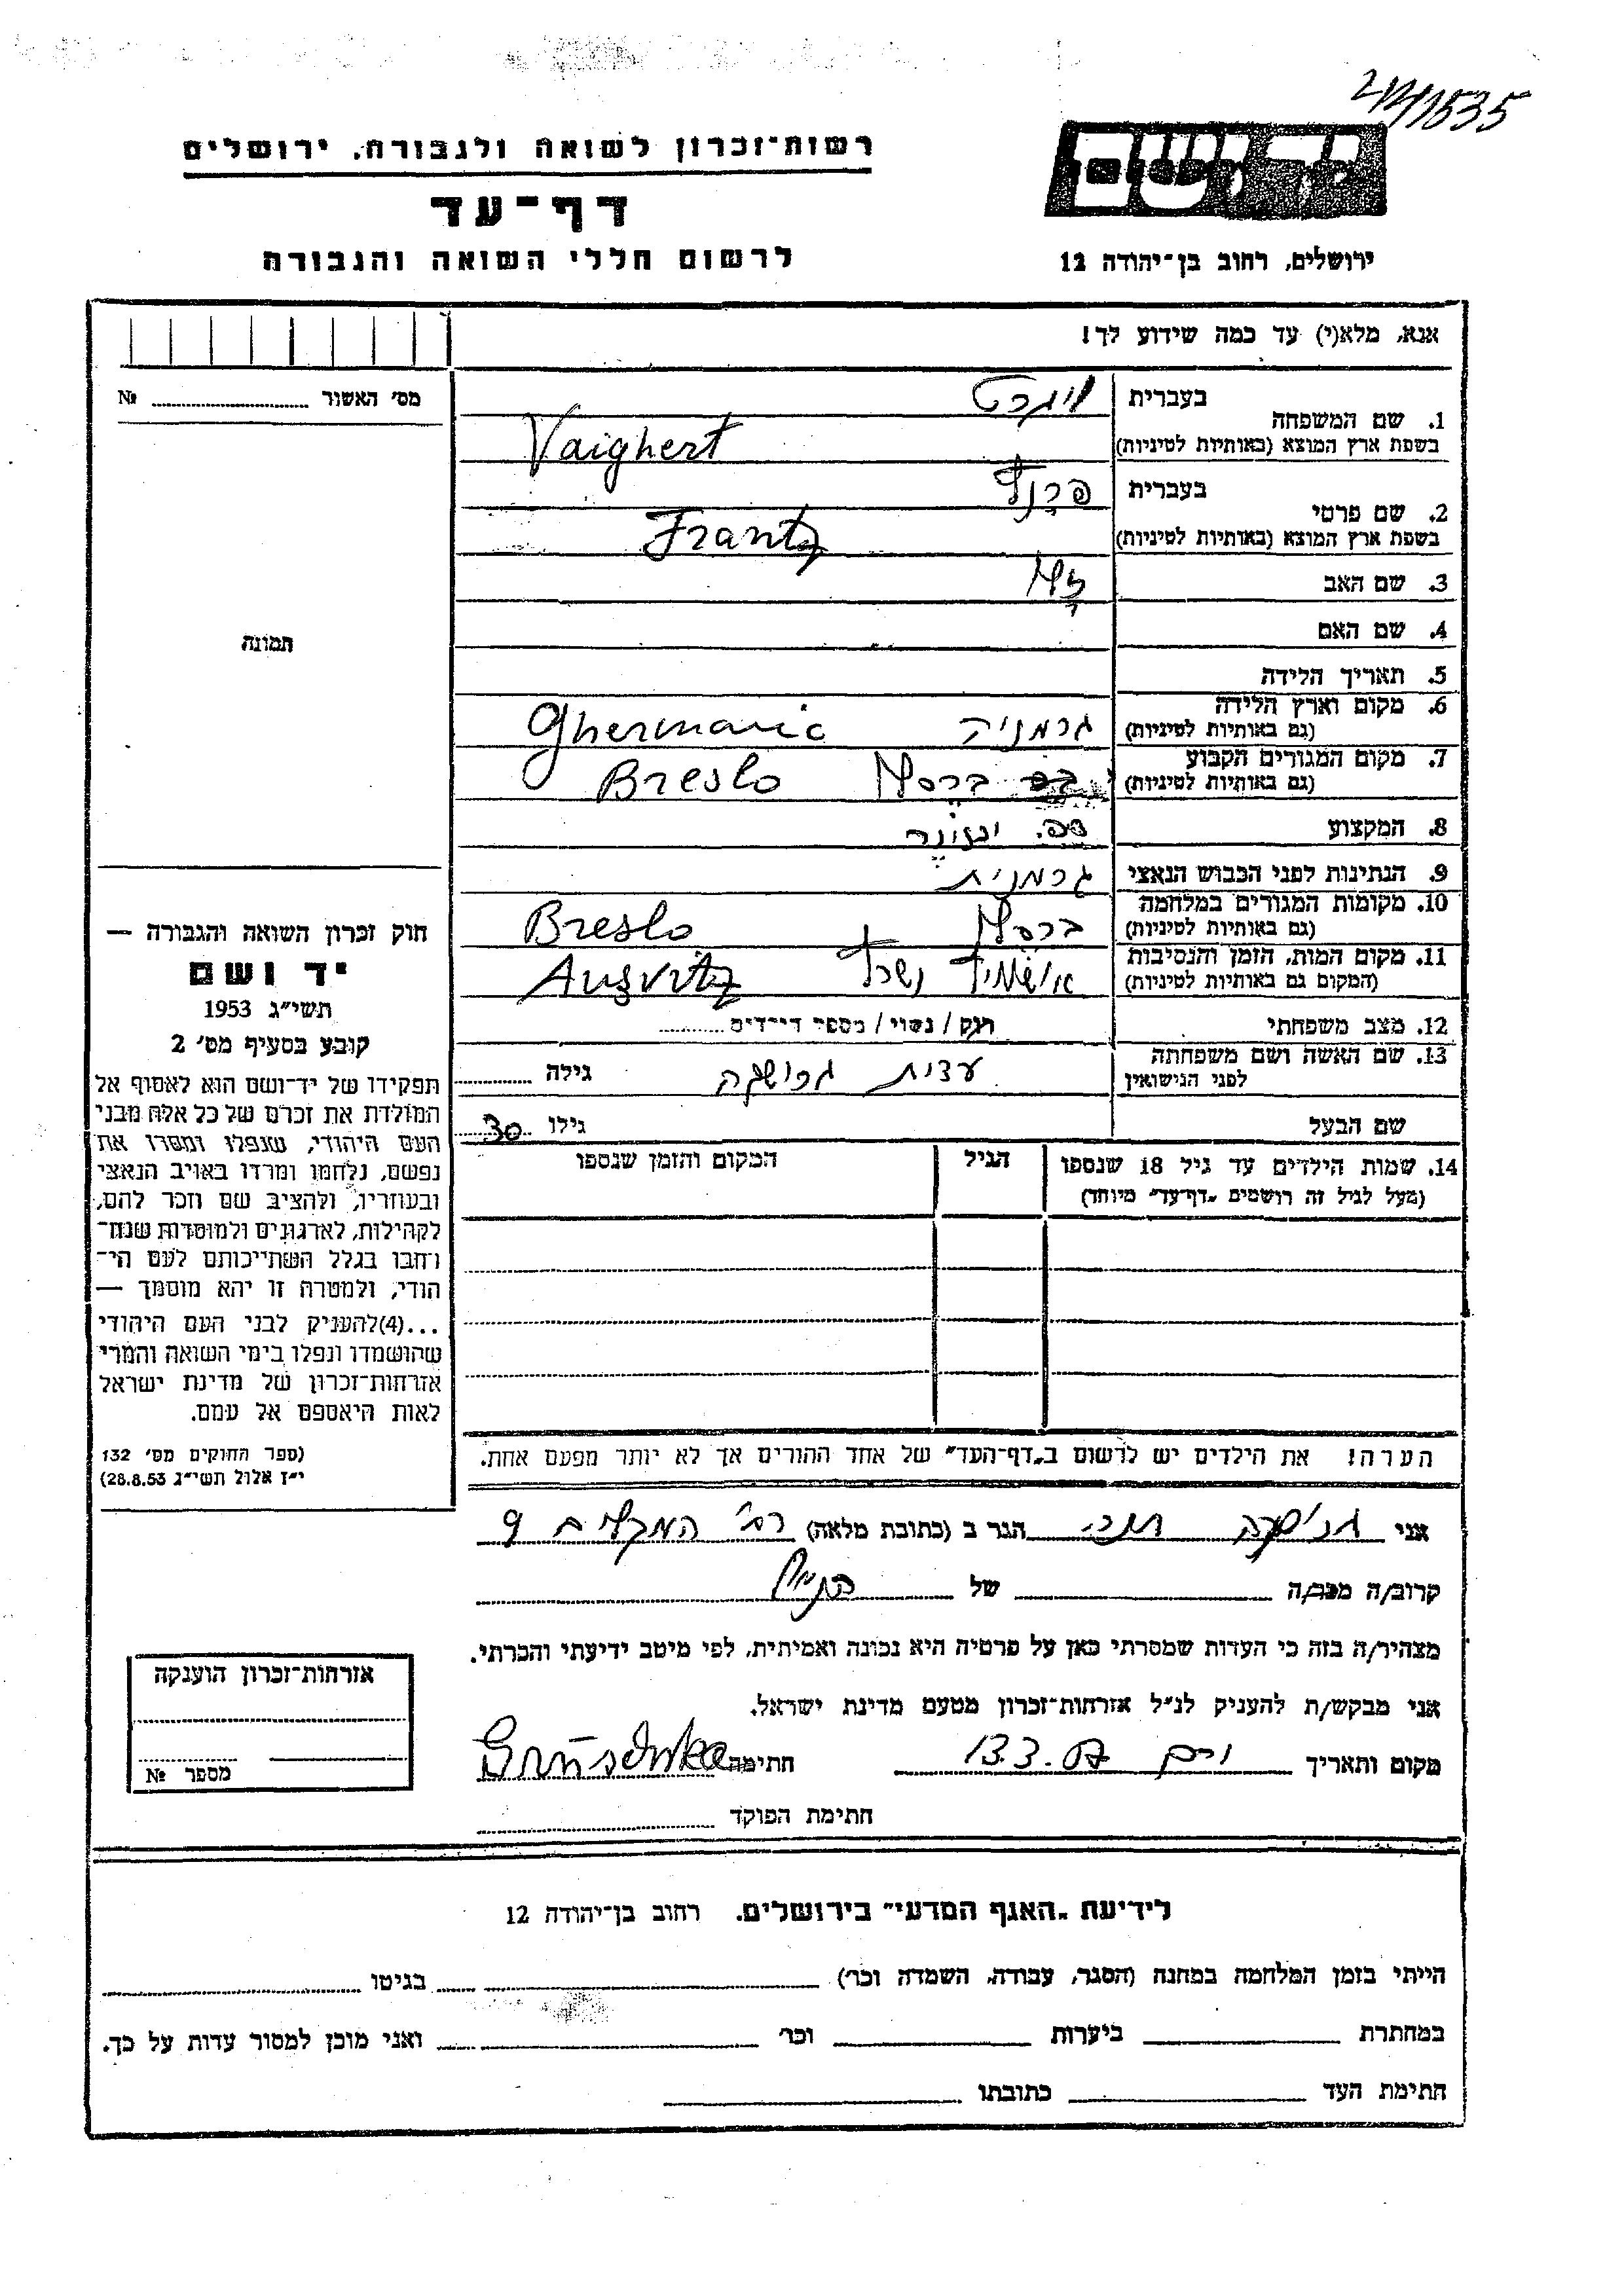 רשות־זכרון לשואה ולגבורה, ירושלים
דף־עד
לרשום חללי השואה והגבורה
ירושלים, רחוב בן־יהודה 12
אנא, מלא(י) עד כמה שידוע לך!
מס' האשור № 
1. שם המשפחה בעברית
בשפת ארץ המוצא (באותיות לטיניות) Vaighert
2. שם פרטי בעברית פרנץ
בשפת ארץ המוצא (באותיות לטיניות) Frantz
3. שם האב
4. שם האם
5. תאריך הלידה
6. מקום וארץ הלידה גרמניה Ghermania
(גם באותיות לטיניות)
7. מקום המגורים הקבוע ברסלו Breslo
(גם באותיות לטיניות)
8. המקצוע
9. הנתינות לפני הכבוש הנאצי גרמנית
10. מקומות המגורים במלחמה ברסלו Breslo
(גם באותיות לטיניות)
11. מקום המות, הזמן והנסיבות אושוויץ נשרף Aușvitz
(המקום גם באותיות לטיניות)
12. מצב משפחתי רוק / נשוי / מספר הילדים
13. שם האשה ושם משפחתה גילה
לפני הנישואין
שם הבעל גילו 30
14. שמות הילדים עד גיל 18 שנספו הגיל המקום והזמן שנספו
(מעל לגיל זה רושמים „דף־עד״ מיוחד)
הערה! את הילדים יש לרשום ב„דף־העד״ של אחד ההורים אך לא יותר מפעם אחת.
תמונה
חוק זכרון השואה והגבורה —
יד ושם
תשי״ג 1953
קובע בסעיף מס' 2
תפקידו של יד־ושם הוא לאסוף אל
המולדת את זכרם של כל אלה מבני
העם היהודי, שנפלו ומסרו את
נפשם, נלחמו ומרדו באויב הנאצי
ובעוזריו, ולהציב שם וזכר להם,
לקהילות, לארגונים ולמוסדות שנח־
רחבו בגלל השתייכותם לעם הי־
הודי, ולמטרה זו יהא מוסמך —
...(4)להעניק לבני העם היהודי
שהושמדו ונפלו בימי השואה והמרי
אזרחות־זכרון של מדינת ישראל
לאות היאספם אל עמם.
(ספר החוקים מס' 132
י״ז אלול תשי״ג 28.8.53)
אני חנה הגר ב (כתובת מלאה) 9
קרוב/ה מכר/ה של
מצהיר/ה בזה כי העדות שמסרתי כאן על פרטיה היא נכונה ואמיתית, לפי מיטב ידיעתי והכרתי.
אני מבקש/ת להעניק לנ״ל אזרחות־זכרון מטעם מדינת ישראל.
מקום ותאריך 13.3.57 חתימה
חתימת הפוקד
אזרחות־זכרון הוענקה
מספר №
לידיעת „האגף המדעי״ בירושלים, רחוב בן־יהודה 12
הייתי בזמן המלחמה במחנה (הסגר, עבודה, השמדה וכר') בגיטו
במחתרת ביערות וכר' ואני מוכן למסור עדות על כך.
חתימת העד כתובתו